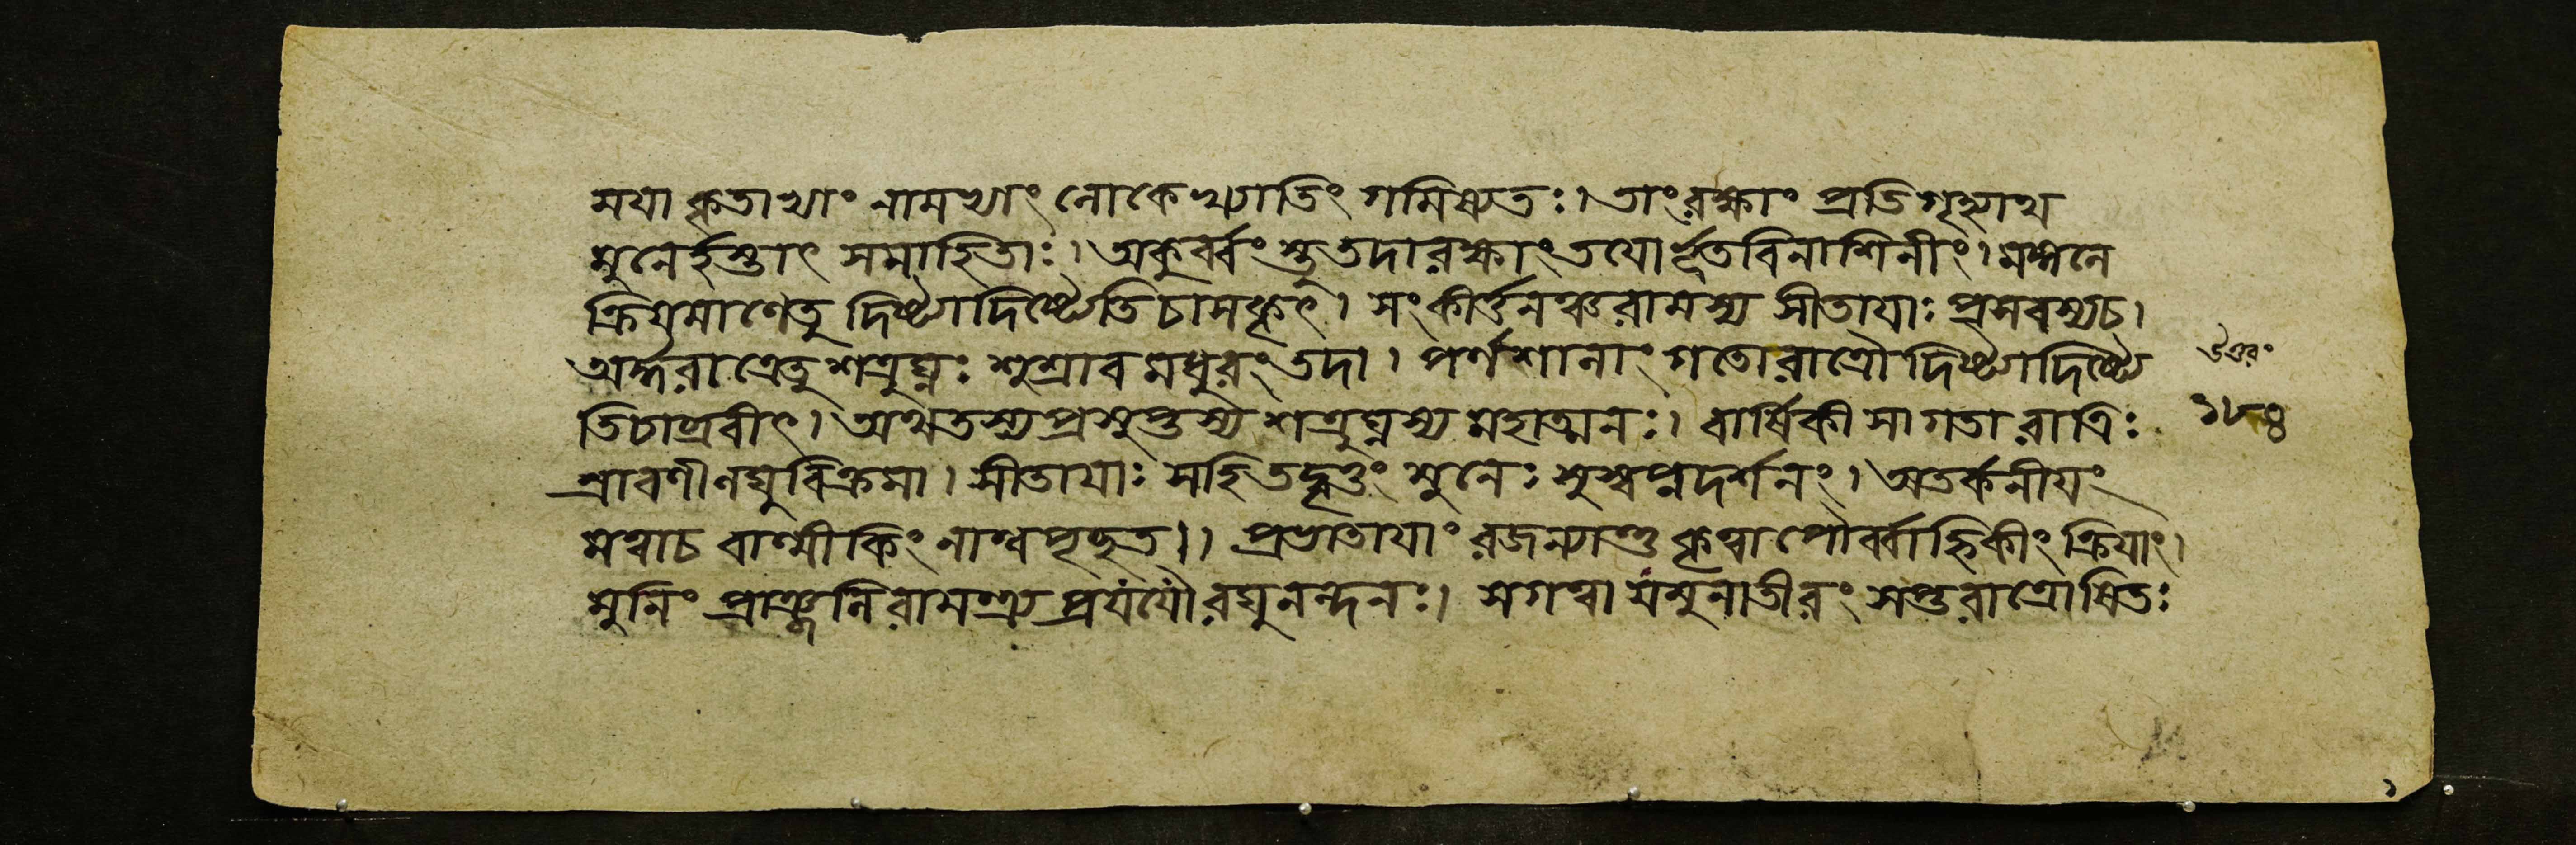 ময়া কৃতাখ্যাং নামখ্যাং লোকে খ্যাতিং গমিষ্যতঃ। তাং রক্ষাং প্রতিগৃহ্যাথ
মুনের্হস্তাৎ সমাহিতাঃ। অকুর্ব্বংস্তু তদা রক্ষাং তয়োর্ভূতবিনাশিনীং। মঙ্গলে
ক্রিয়মাণেতু দিষ্ট্যাদিষ্ট্যেতিচাসকৃৎ। সংকীর্ত্তনঞ্চরামস্য সীতায়াঃ প্রসবস্যচ।
অর্দ্ধরাত্রেতু শত্রুঘ্নঃ শুশ্রাব মধুরং তদা। পর্ণশালাং গতোরাত্রৌ দিষ্ট্যাদিষ্ট্যে
তিচাব্রবীৎ। অথতস্যপ্রসুপ্তস্য শত্রুঘ্নস্য মহাত্মনঃ। বার্ষিকী সাগতা রাত্রিঃ
শ্রাবণীলঘুবিক্রমা। সীতায়াঃ সহিতদ্বৃত্তং মুনেঃ সুস্বপ্নদর্শনং। অতর্কনীয়ং
মত্বাচ বাল্মীকিং নান্বপৃচ্ছত।। প্রভাতায়াং রজন্যান্তু কৃত্বা পৌর্ব্বাহ্নিকীং ক্রিয়াং।
মুনিং প্রাঞ্জলিরামন্ত্র্য প্রযযৌ রঘুনন্দনঃ। সগত্বা যমুনাতীরং সপ্তরাত্রোষিতঃ
উত্তরং
১৮৪